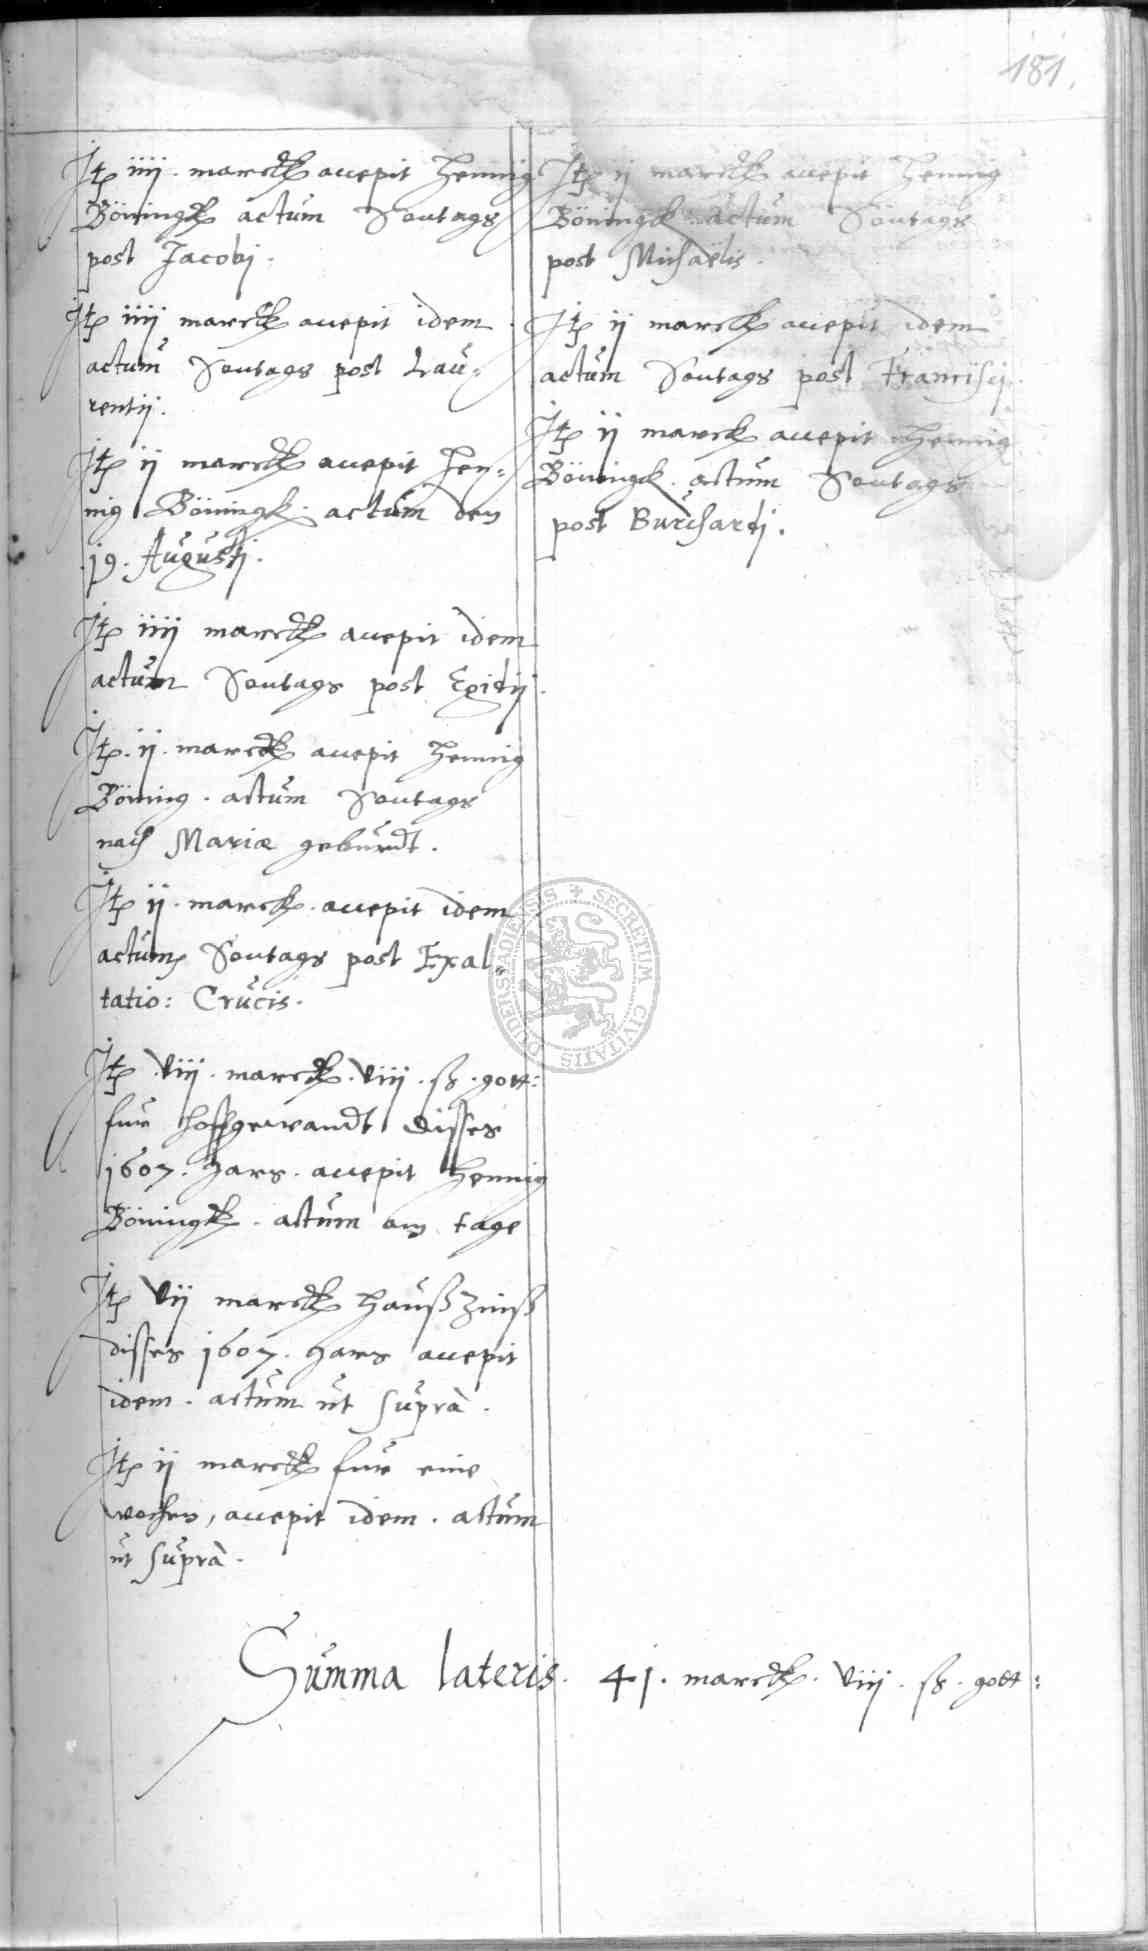 181.
Jtz iiij. marck accepit Hennig
Böningk actum Sontags
post Jacobj.
Jtz iiij marck accepit idem
actum Sontags post Lau-
rentij.
Jtz ij marck accepit Hen-
nig Böningk. actum den
19. Augustj.
Jtz iiij marck accepit idem
actum Sontags post Egidij.
Jtz. ij. marck accepit Hennig
Böning. actum Sontags
nach Mariæ geburdt.
Jtz ij. marck. accepit idem
actum Sontags post Exal-
tatio: Crucis.
Jtz viij. marck. viij. ß. gott:
fur hoffgewandt disses
1607. Jars. accepit Hennig
Böningk. actum am tage
Jtz vij marck Haußzinß
disses 1607. Jars accepit
idem. actum ut suprà.
Jtz ij marck fur eine
wochen, accepit idem. actum
ut suprà.
Jtz ij marck accepit Hennig
Böningk actum Sontags
post Michaëlis.
Jtz ij marck accepit idem
actum Sontags post Francisci.
Jtz ij marck accepit Hennig
Böningk. actum Sontags
post Burchardj.
Summa lateris. 41. marck. viij. ß. gott:
SECRETUM CIVITATIS DUDERSTADIENSIS